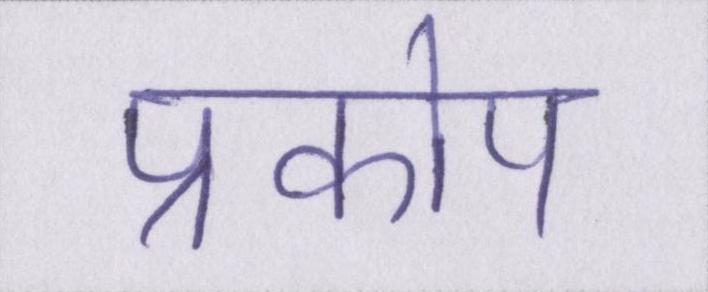 प्रकोप